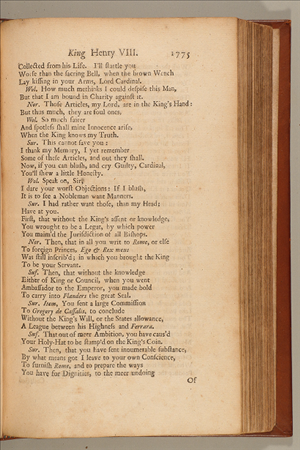 King Henry VIII. 1775
Collected from his Life. I'll startle you
Worse than the sacring Bell, when the brown Wench
Lay kissing in your Arms, Lord Cardinal.
Wol. How much methinks I could despise this Man,
But that I am bound in Charity against it.
Nor. Those Articles, my Lord, are in the King's Hand:
But thus much, they are foul ones.
Wol. So much fairer
And spotless shall mine Innocence arise,
When the King knows my Truth.
Sur. This cannot save you:
I thank my Memory, I yet remember
Some of these Articles, and out they shall.
Now, if you can blush, and cry Guilty, Cardinal,
You'll shew a little Honesty.
Wol. Speak on, Sir;
I dare your worst Objections: If I blush,
It is to see a Nobleman want Manners.
Sur. I had rather want those, than my Head;
Have at you.
First, that without the King's assent or knowledge,
You wrought to be a Legat, by which power
You maim'd the Jurisdiction of all Bishops.
Nor. Then, that in all you writ to Rome, or else
To foreign Princes, Ego & Rex meus
Was still inscrib'd; in which you brought the King
To be your Servant.
Suf. Then, that without the knowledge
Either of King or Council, when you went
Ambassador to the Emperor, you made bold
To carry into Flanders the great Seal.
Sur. Item, You sent a large Commission
To Gregory de Cassalis, to conclude
Without the King's Will, or the States allowance,
A League between his Highness and Ferrara.
Suf. That out of meer Ambition, you have caus'd
Your Holy-Hat to be stamp'd on the King's Coin.
Sur. Then, that you have sent innumerable substance,
By what means got I leave to your own Conscience,
To furnish Rome, and to prepare the ways
You have for Dignities, to the meer undoing
Of